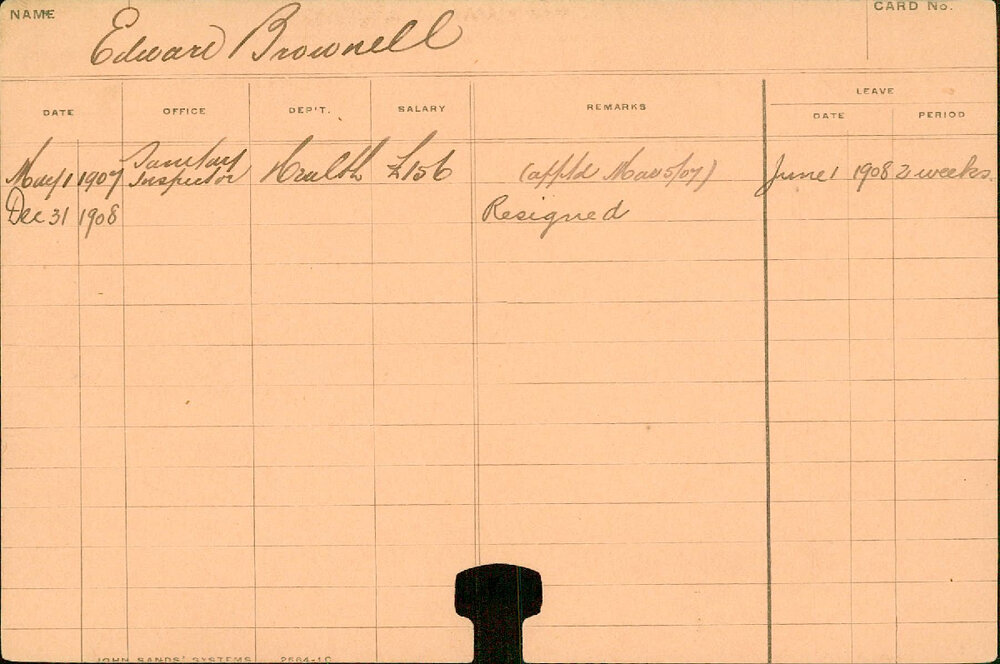 NAME Edward Brownell CARD No.
DATE OFFICE DEP'T. SALARY REMARKS LEAVE
DATE PERIOD
May 1 1907 Sanitary Inspector Health £156 (app'td Mar 5/07) June 1 1908 2 weeks
Dec 31 1908 Resigned
JOHN SANDS' SYSTEMS 2564-10